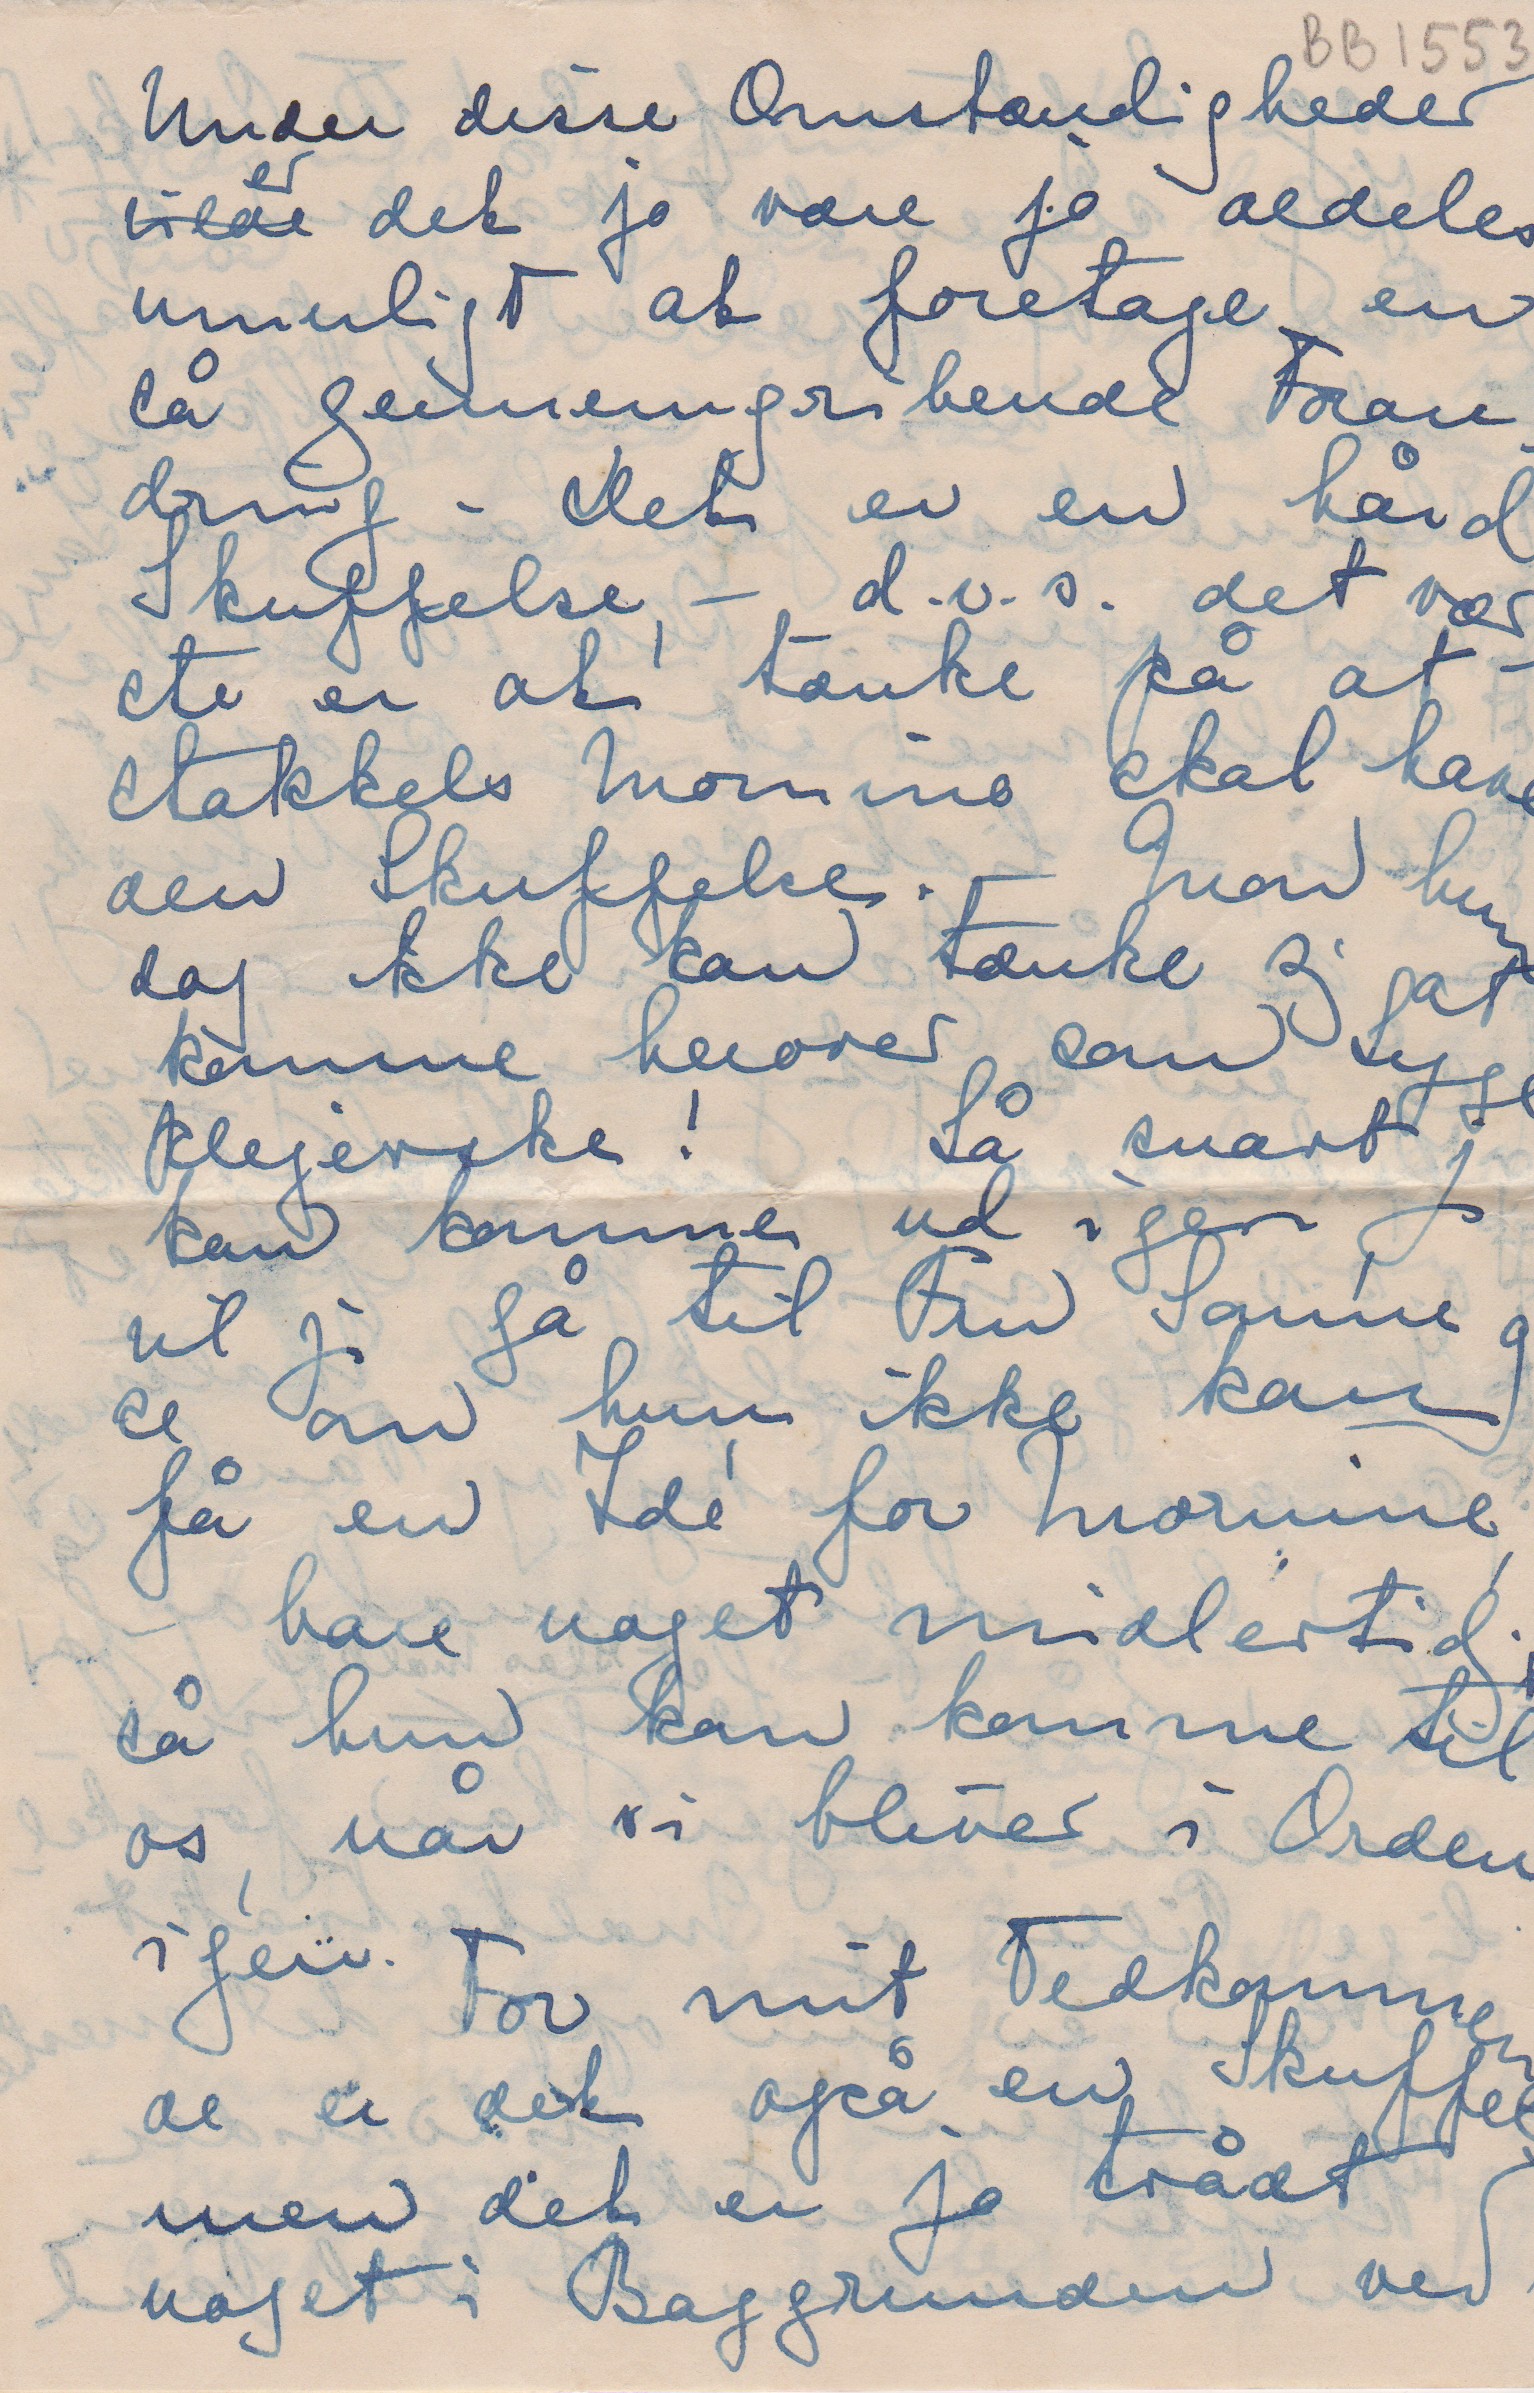 BB 1553
Under disse Omstændigheder
er
vilde det jo være jo aldeles
umuligt at foretage en
så gennemgribende Foran
dring - Det er en hård
Skuffelse, - d.v.s. det vær
ste er at tænke på at -
stakkels Mornine skal have
den Skuffelse. - Mon hun
dog ikke kan tænke sig at
komme herover som Syge
plejerske! Så snart j
kan komme ud igen,
vil j gå til Fru Sanne
se om hun ikke kan
få en Idé for Mornine,
- bare noget midlertid.
så hun kan komme til
os, når vi bliver i Orden
igen. For mit Vedkommen
de er det også en Skuffel
men det er jo trådt
noget i Baggrunden ved